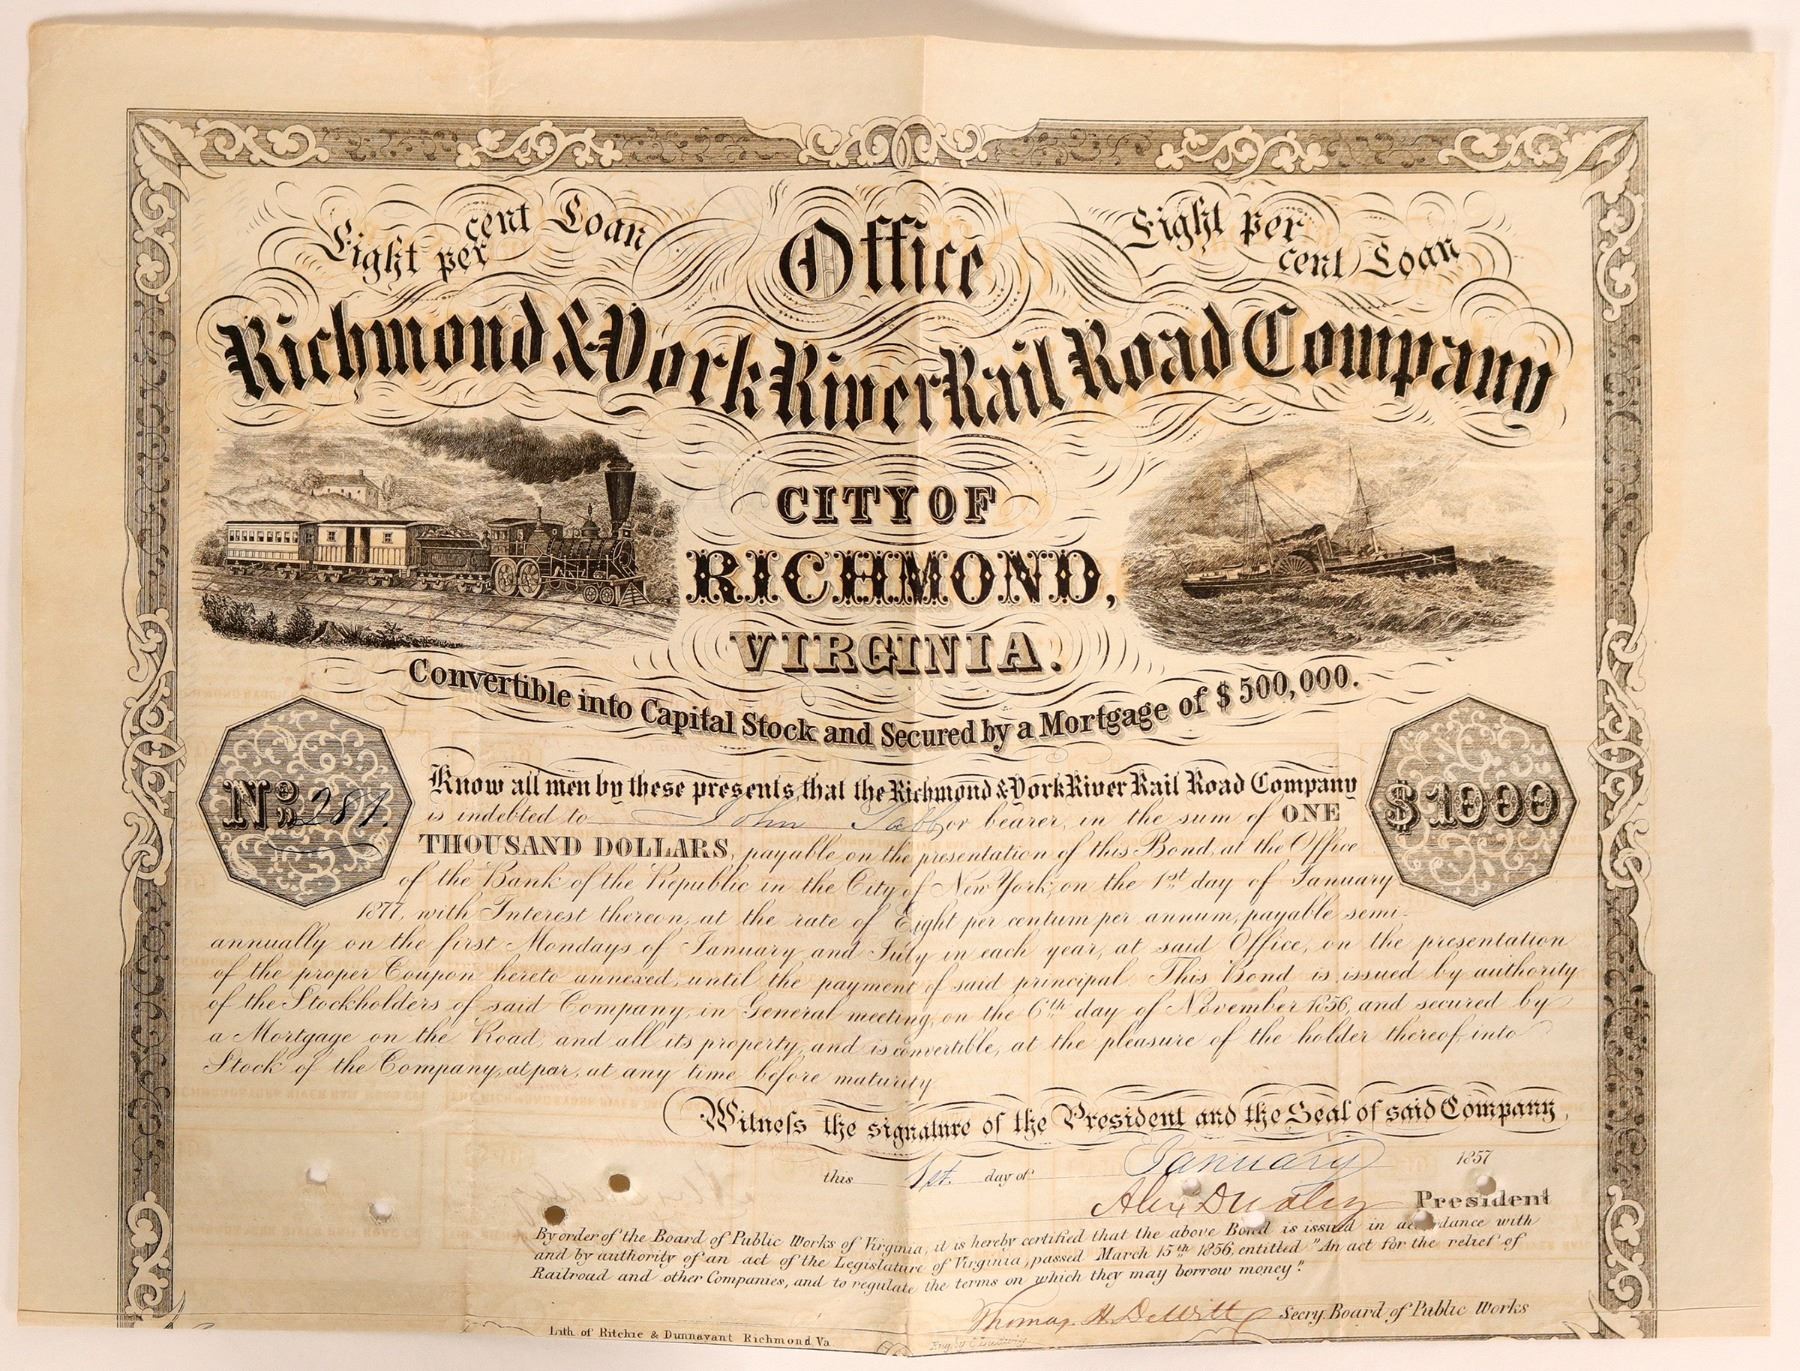 Eight per cent Loan
Office
Eight per cent Loan
Richmond & York River Rail Road Company
CITY OF
RICHMOND,
VIRGINIA.
Convertible into Capital Stock and Secured by a Mortgage of $500,000.
No 287.
$1000
Know all men by these presents, that the Richmond & York River Rail Road Company
is indebted to John Tabb or bearer, in the sum of ONE
THOUSAND DOLLARS, payable on the presentation of this Bond, at the Office
of the Bank of the Republic in the City of New York, on the 1st day of January
1877, with Interest thereon, at the rate of Eight per centum per annum, payable semi-
annually on the first Mondays of January and July in each year, at said Office, on the presentation
of the proper Coupon hereto annexed, until the payment of said principal. This Bond is issued by authority
of the Stockholders of said Company, in General meeting, on the 6th day of November 1856, and secured by
a Mortgage on the Road, and all its property, and is convertible, at the pleasure of the holder thereof, into
Stock of the Company, at par, at any time before maturity
Witness the signature of the President and the Seal of said Company,
this 1st. day of January 1857
Alex Dudley President
By order of the Board of Public Works of Virginia, it is hereby certified that the above Bond is issued in accordance with
and by authority of an act of the Legislature of Virginia, passed March 15th 1856, entitled "An act for the relief of
Railroad and other Companies, and to regulate the terms on which they may borrow money."
Thomas H. DeWitt Secry. Board of Public Works
Lith. of Ritchie & Dunnavant Richmond, Va.
Eng. by C. Ludwig